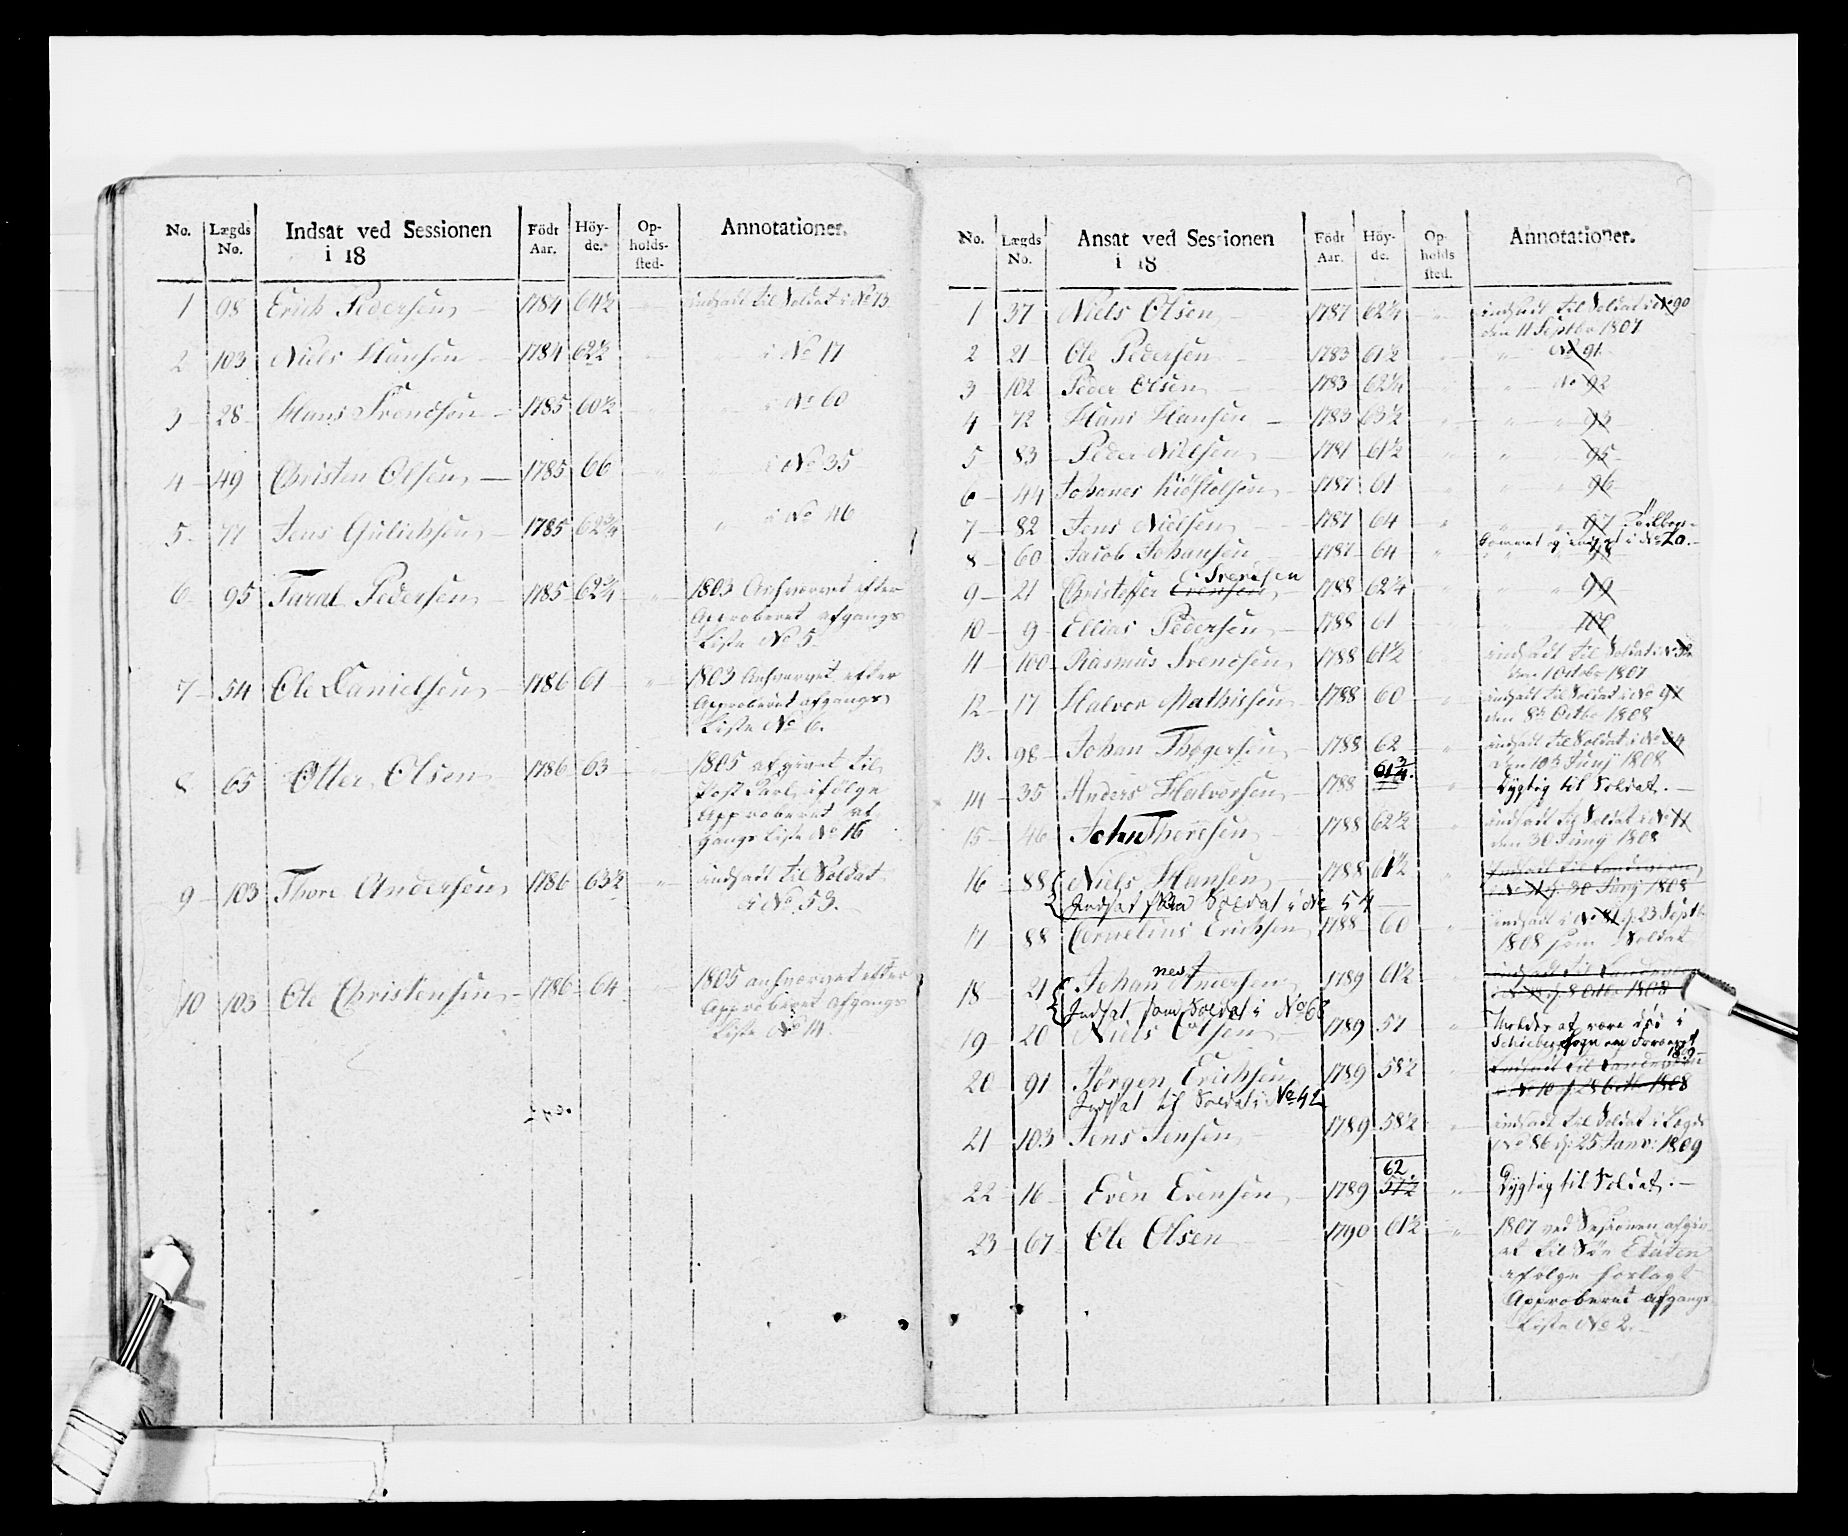 No. Lægds No. Indsat ved Sessionen i 18 Födt Aar. Höy-de. Op-holds-sted. Annotationer.
1 98 Erich Pedersen 1784 64½ " indsadt til Soldat i No 13
2 103 Niels Hansen 1784 62½ " i No 17
3 28 Hans Svendsen 1785 60½ " i No 60
4 49 Christen Olsen 1785 66 " i No 35
5 77 Jens Gulichsen 1785 62¾ " i No 46
6 95 Taral Pedersen 1785 62¾ " 1803 Casserret efter
Approberet afgangs
Liste No 5.
7 54 Ole Danielsen 1786 61 " 1803 efter
Approberet afgangs
Liste No 6.
8 65 Otter Olsen 1786 63 " 1805 afgivet til
Post Carl ifölge
Approberet af
gangs Liste No 16
9 103 Thore Andersen 1786 63½ " indsadt til Soldat
i No 53.
10 103 Ole Christensen 1786 64 " 1805 efter
Approberet afgangs
Liste No 14.
No. Lægds No. Ansat ved Sessionen i 18 Födt Aar. Höy-de. Op-holds sted. Annotationer.
1 37 Niels Olsen 1787 62¼ " indsadt til Soldat i No 90
den 11 Septbr 1807
2 21 Ole Pedersen 1783 61½ " No 91
3 102 Peder Olsen 1783 62¼ " No 92
4 72 Hans Hansen 1783 63½ " 93
5 83 Peder Nielsen 1781 61½ " 95
6 44 Johanes Kiöstelsen 1787 61 " 96
7 82 Jens Nielsen 1787 64 " 97
8 60 Jacob Johansen 1787 64 " og indsat i No 20.
9 21 Christoffer Evensen Svensen 1788 62¼ " 99
10 9 Ellias Pedersen 1788 61 100
11 100 Rasmus Svendsen 1788 61½ indsadt til Soldat i No
den 1 Octobr 1807
12 17 Halvor Mathisen 1788 60 " indsadt til Soldat i No 91
den 8de Octbr 1808
13. 98 Johan Thogersen 1788 62 " indsadt til Soldat i No 34
den 10de Junj 1808
14 35 Anders Halvorsen 1788 61¾ " Dygtig til Soldat.
15 46 John Theresen 1788 62½ " indsadt til Soldat i No 11
den 30 Junij 1808
16 88 Niels Hansen 1788 61½ " Indsadt til Landeværn
30 Junj 1808
Indsat som Soldat i No 54
17 88 Cornelius Erichsen 1788 60 " indsadt i No 81 d. 23 Septb
1808 som Soldat
18 21 Johannes Andersen 1789 61½ indsadt til Landeværn
8 Octbr 1808
Indsat som Soldat i No 68
19 20 Niels Olsen 1789 57 " Meldes at være död i
20 91 Jörgen Erichsen 1789 58½ Indsadt til Landeværn
No 10 d. 28 Octbr 1808
Indsat til Soldat i No 42
21 103 Jens Jensen 1789 58½ " indsadt til Soldat i Lægd
No 86 d. 25 Janv: 1809
22 16 Even Evensen 1789 62 57½ " Dygtig til Soldat.
23 67 Ole Olsen 1790 61½ " 1807 ved Sessionen afgiv
et til Söe Etaten
ifölge forlagt
Approberet afgangs
Liste No 2.